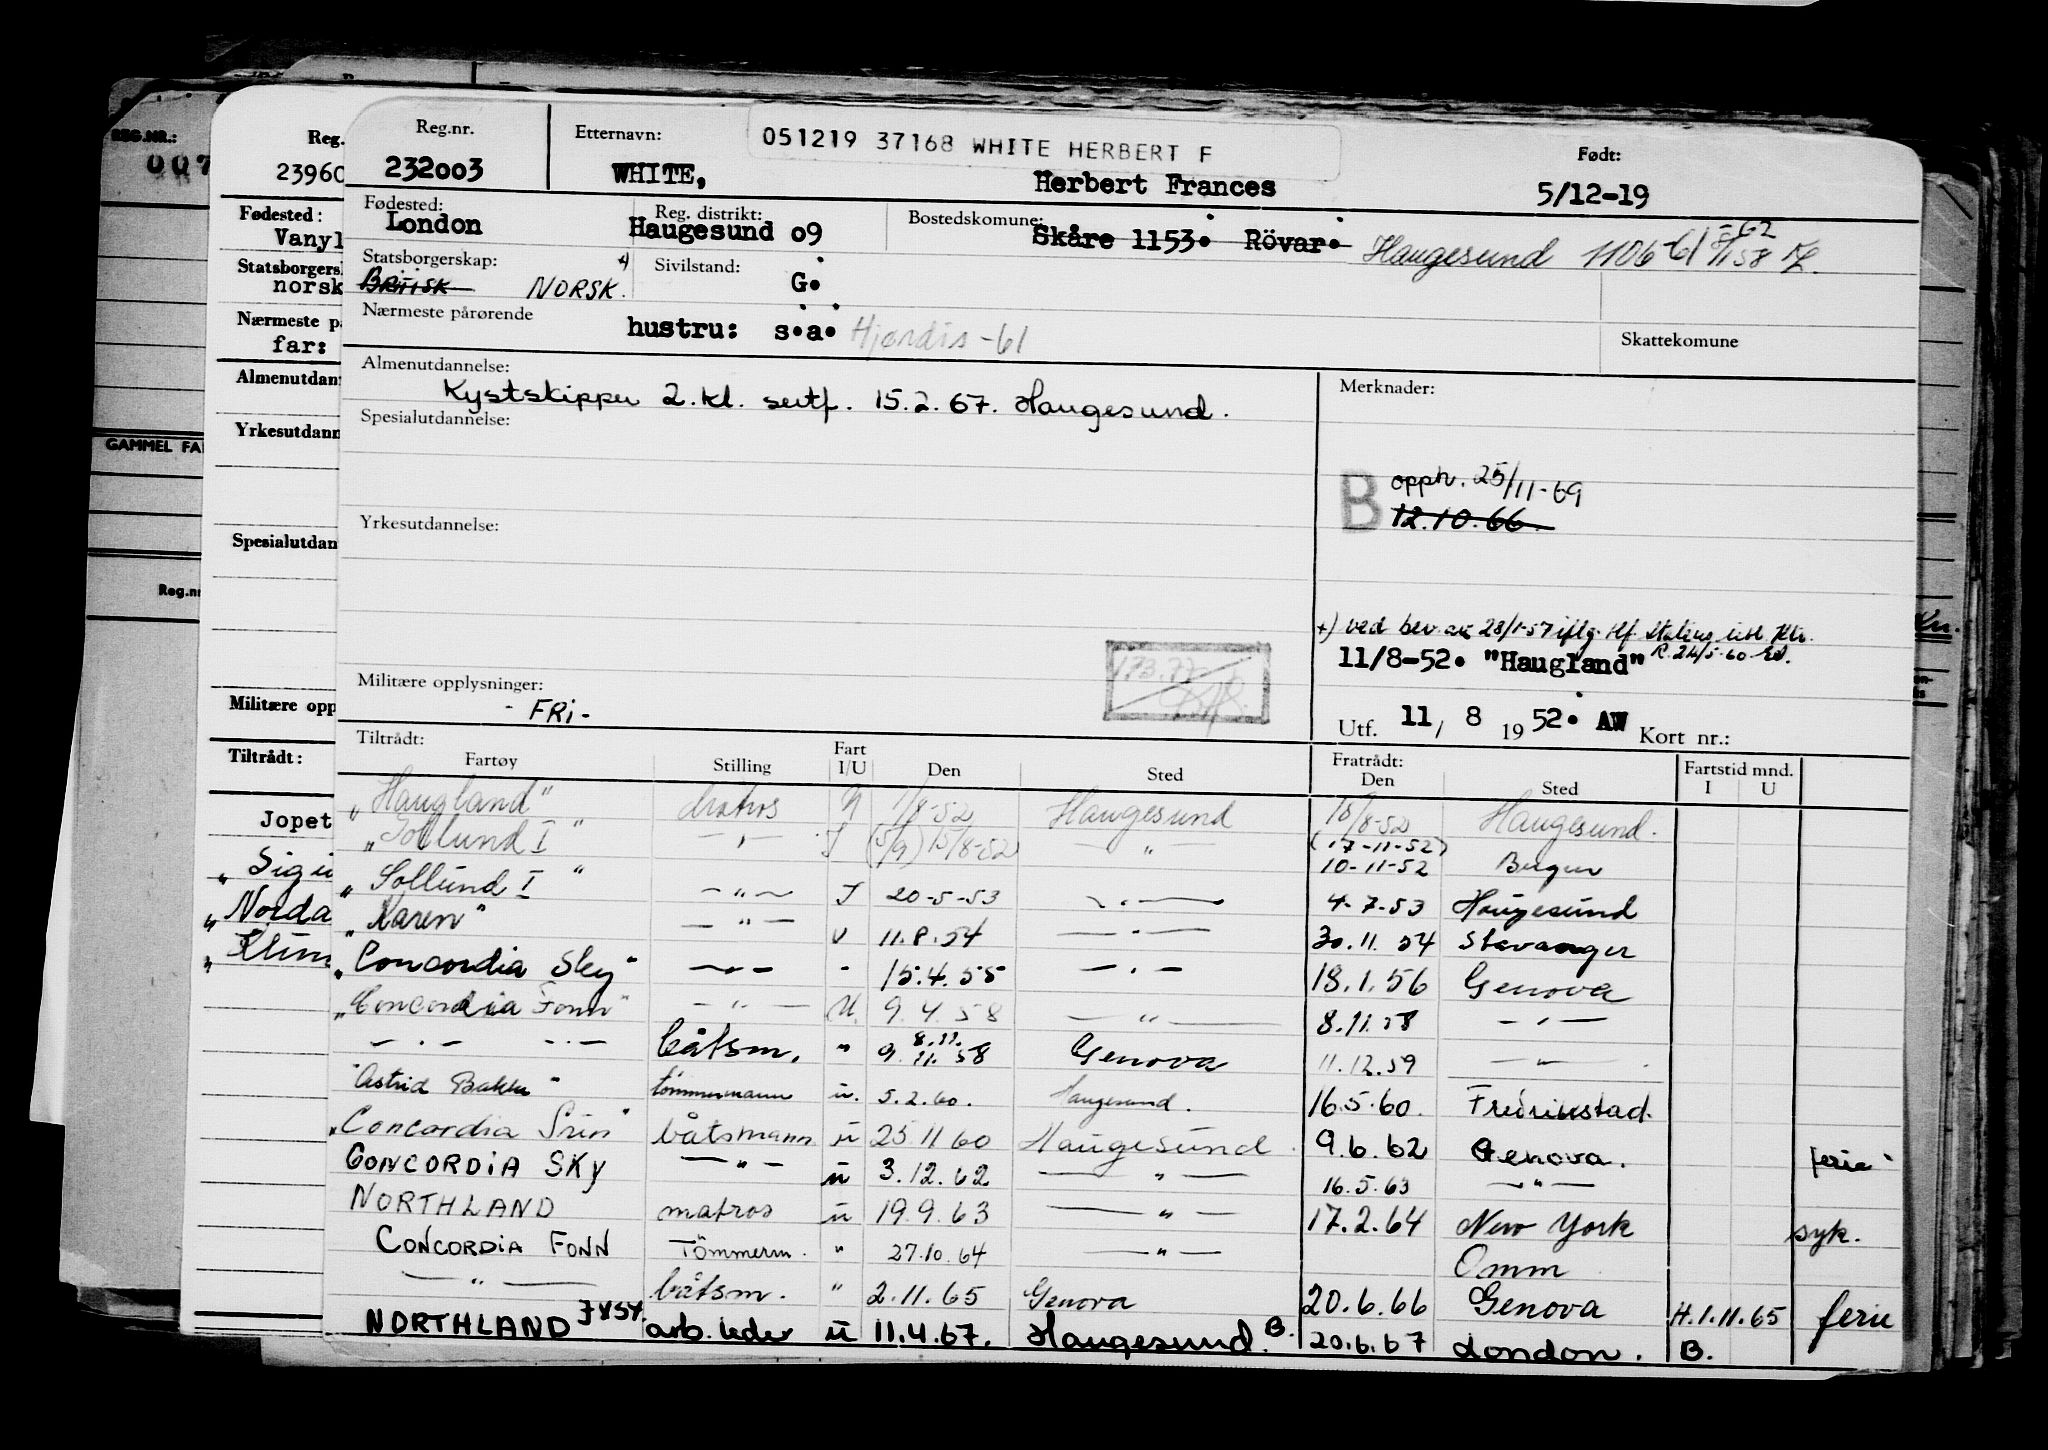 REG.NR.:
007
GAMMEL FA
Reg.nr
Reg.
23960
Fødested:
Vanyl
Statsborgersk
norsk
Nærmeste på
far:
Almenutdann
Yrkesutdann
Spesialutdan
Militære opp
Tiltrådt:
Jopet
„ Sigu
„ Norda
Reg.nr. Etternavn: 051219 37168 WHITE HERBERT F Født:
232003 WHITE, Herbert Frances 5/12-19
Fødested: Reg. distrikt: Bostedskomune:
London Haugesund 09 Skåre 1153. Rövar. Haugesund 1106 61 -62
Statsborgerskap: Sivilstand:
Britisk NORSK. G.
Nærmeste pårørende
hustru: s.a. Hjørdis -61 Skattekomune
Almenutdannelse: Merknader:
Kystskipper 2. kl. sertf. 15.2.67. Haugesund.
Spesialutdannelse:
B opph. 25/11-69
12.10.66.
Yrkesutdannelse:
+) ved bev. av 28/1-57 iflg.
11/8-52. "Haugland"
173.77
Militære opplysninger:
- FRi -
Utf. 11/ 8 1952. AW Kort nr.:
Tiltrådt: Fart Fratrådt: Fartstid mnd.
Fartøy Stilling I/U Den Sted Den Sted I U
„Haugland" Matros 1/8-52 Haugesund 15/8-52 Haugesund.
„Sollund I" — „ — J (5/9) 15/8-52 — „ — (17-11-52) 10-11-52 Bergen
„Sollund I" — „ — J 20-5-53 — „ — 4-7-53 Haugesund
„Karen" — „ — U 11.8.54 — „ — 30.11.54 Stavanger
„Concordia Sky" — „ — - 15.4.55 — „ — 18.1.56 Genova
„Concordia Fonn" — „ — U. 9.4.58 — „ — 8.11.58 — „ —
— „ — — „ — båtsm. " 8.11. 9.11.58 Genova 11.12.59 — „ —
"Astrid Bakke" tömmermann u. 5.2.60. Haugesund. 16.5.60. Fredrikstad.
„Concordia Srin" båtsmann u 25 11 60 Haugesund 9.6.62 Genova. ferie
CONCORDIA SKY — „ — u 3.12.62 — „ — 16.5.63 — „ —
NORTHLAND matros u 19.9.63 — „ — 17.2.64 New York syk.
CONCORDIA FONN Tömmerm. " 27.10.64 — „ — Omm
— „ — båtsm. " 2.11.65 Genova 20.6.66 Genova H.1.11.65 ferie
NORTHLAND arb. leder u 11.4.67. Haugesund. B. 20.6.67 London. B.